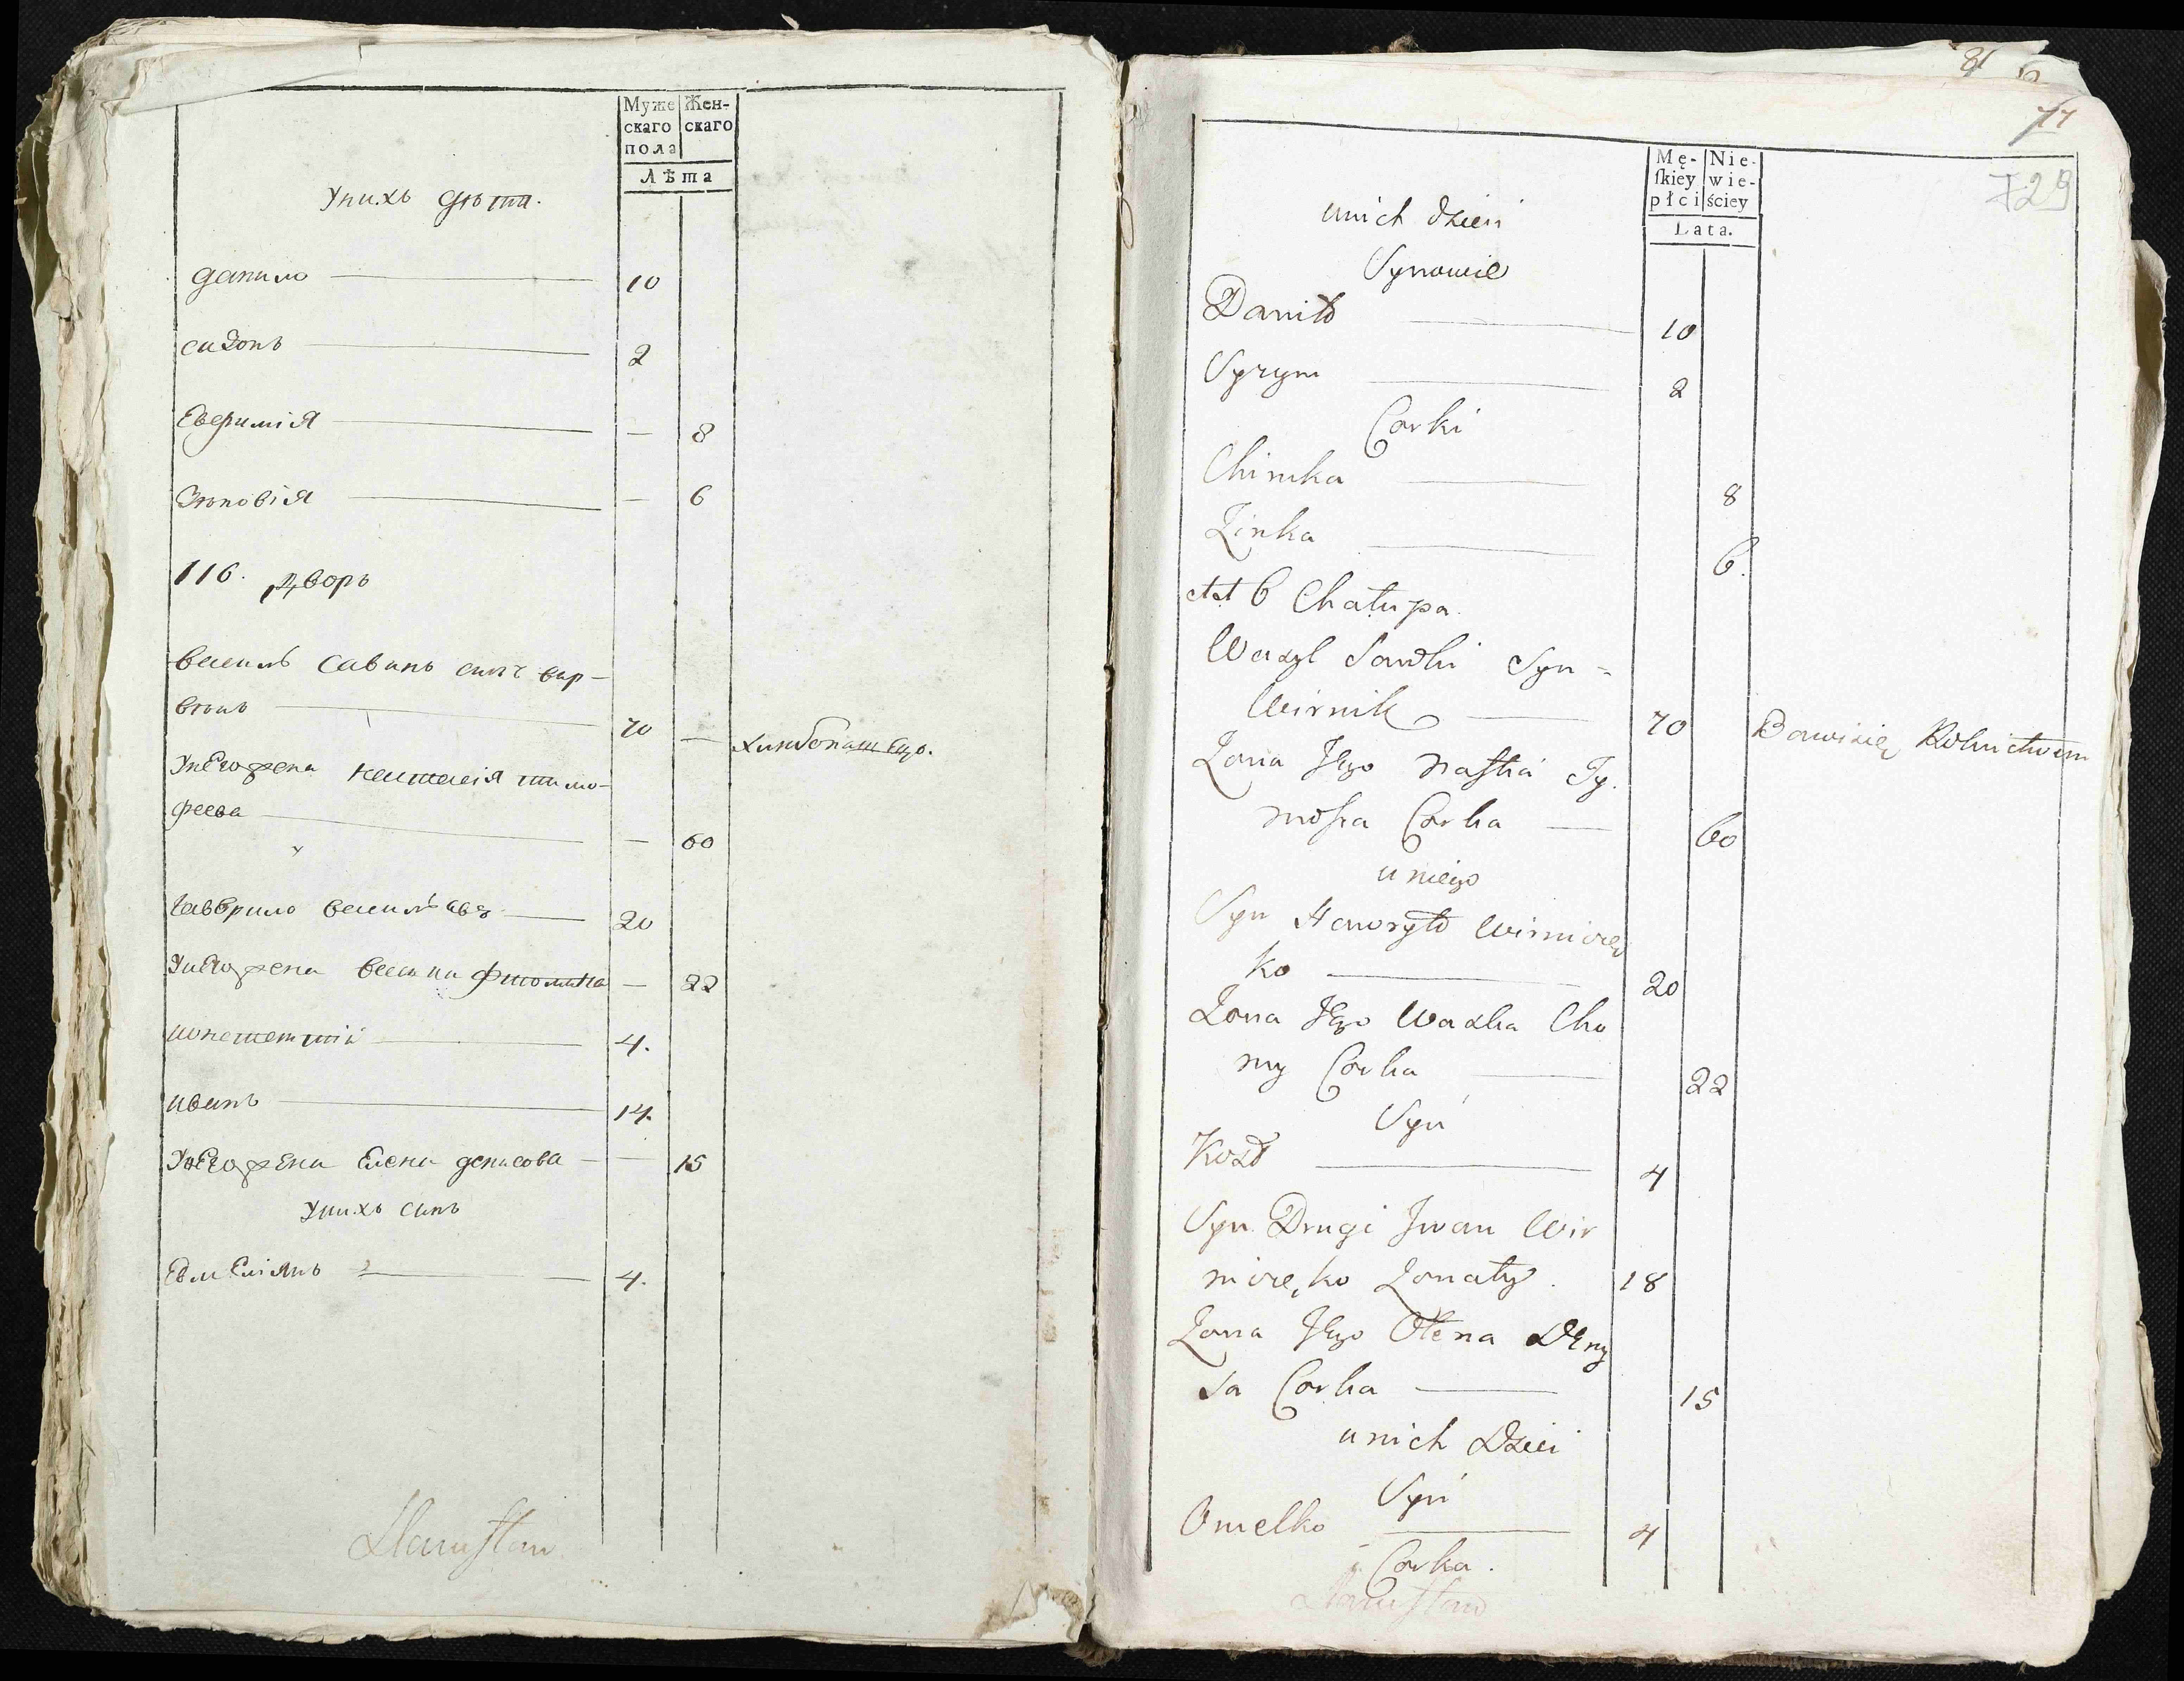 Муже скаго пола
Жен- скаго
Лѣта
Унихъ дѣти.
данило 10
сидонъ 2
Евфимія — 8
Зѣновія — 6
116. Дворъ
василь савинъ синъ вир-
вѣнъ 70 — хлибопашецъ.
Унего жена настасія тимо-
феева — 60
Гаврило васильевъ 20
Унего жена васина фтомина — 22
4.
иванъ 14.
Унего жена Елена денисова — 15
Унихъ синъ
Евмеліянъ 4.
81
77
729
Mę- skiey płci
Nie- wie- ściey
Lata.
unich dzieci
Synowie
Daniło 10
Syzym 2
Corki
Chimka 8
Zinka 6.
Chałupa.
Wazyl Sawki Syn =
Wirnik 70 Bawisię Rolnictwem
Zona Jego Nastia Ty.
mosza Corka 60
u niego
Syn Hawryło Wirnicę
ko 20
Zona Jego Waska Cho
my Corka 22
Syn
Kozd 4
Syn Drugi Jwan Wir
nicęko Zonaty. 18
Zona Jego Ołena Deny
sa Corka 15
unich Dzieci
Syn
Omelko 4
i Corka.